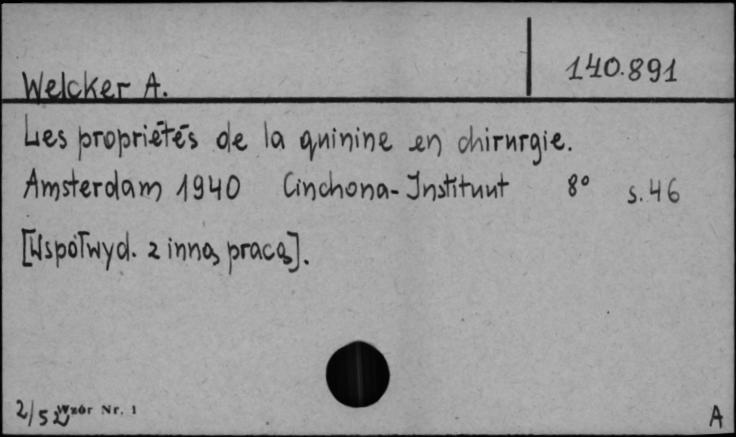 140.891
Welcker A.
Les propriétés de la quinine en chirurgie.
Amsterdam 1940 Cinchona-Instituut 8° s.46
[Współwyd. z inną pracą].
2/52 Wzór Nr. 1
A